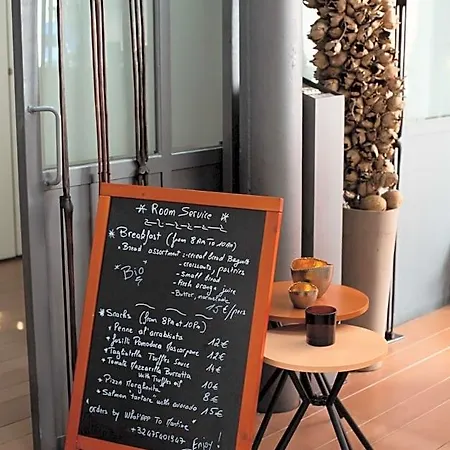 * Room Service *
* Breakfast (from 8 AM to 10AM)
- Bread assortment: - cereal bread Baguette
- croissants, pastries
- Small bread
"Bio"
- Fresh orange juice
- Butter, marmalade
15€/pers
* Snacks (from 8AM at 10PM)
* Penne al arrabbiata 12€
* Fusilli Pomodoro Mascarpone 12€
* Tagliatella Truffles Sauce 14€
* Tomato Mozzarella Burratta
with Truffles oil 10€
* Pizza Margherita 8€
* Salmon "tartare" with avocado 15€
orders by WhatsAPP To Martine
+32475401947 Enjoy!